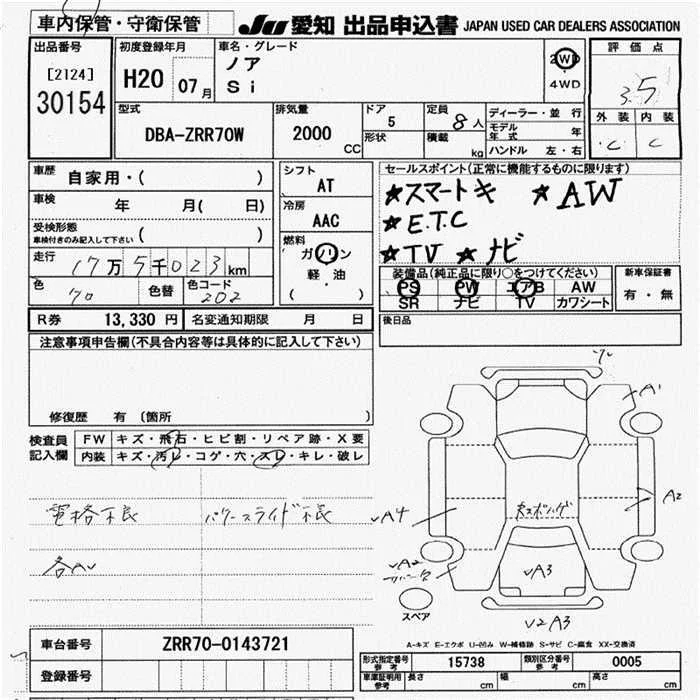 車内保管・守衛保管 JU 愛知 出品申込書 JAPAN USED CAR DEALERS ASSOCIATION
出品番号 初度登録年月 車名・グレード 評価点
[2124] H20 07月 ノア 2WD
30154 Si 4WD 3.5
型式 排気量 ドア 定員 ディーラー・並行 外装 内装
DBA-ZRR70W 2000 CC 5 8人 モデル年式 年 C C
形状 積載 kg ハンドル 左・右
車歴 自家用・( ) シフト セールスポイント(正常に機能するものに限ります)
AT ★スマートキ ★AW
車検 年 月( 日) 冷房 ★E.T.C
受検形態 AAC ★TV ★ナビ
車検付きのみ記入して下さい ( ) 燃料
走行 17万5千023km ガソリン 装備品(純正品に限り○をつけてください) 新車保証書
軽・油 PS PW エアB AW 有・無
色 70 色替 色コード 202 ( ) SR ナビ TV カワシート
R券 13,330 円 名変通知期限 月 日 後日品
注意事項申告欄(不具合内容等は具体的に記入して下さい)
修復歴 有 〔箇所 〕
検査員 FW キズ・飛石・ヒビ割・リペア跡・X要
記入欄 内装 キズ・汚レ・コゲ・穴・スレ・キレ・破レ
電格不良 パワースライド不良
各AU
A1
A2
A4
A2
A3
スペア
V2 A3
A-キズ E-エクボ U-凹み W-補修跡 S-サビ C-腐食 XX-交換済
車台番号 ZRR70-0143721
登録番号
形式指定番号 参考 15738 類別区分番号 参考 0005
車庫証明用 参考 長さ cm 幅 cm 高さ cm